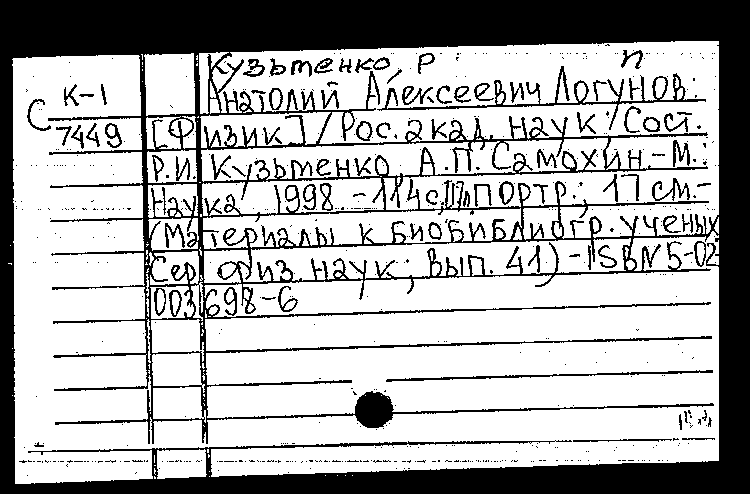 Кузьменко, Р п
К-1 Анатолий Алексеевич Логунов:
С 7449 [Физик] / Рос. акад. наук; Сост.
Р.И. Кузьменко, А.П. Самохин. - М.:
Наука, 1998. - 114с, портр.; 17 см. -
(Материалы к биобиблиогр. ученых
Сер. физ. наук; вып. 41) - ISBN 5-02-
003698-6